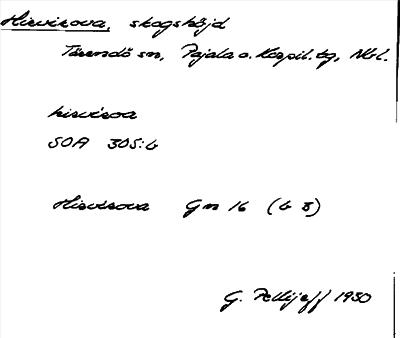 Hirvirova, skogshöjd
Tärendö sn, Pajala o. Korpil. tg, Nbl.
hirviroa
SOA 305:6
Hirvirova Gm 16 (b 8)
G. Pellijeff 1980